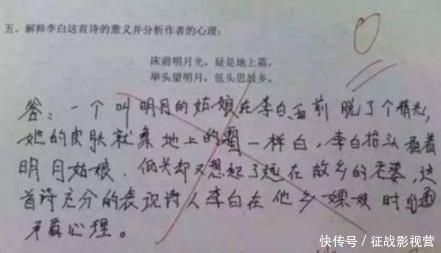 五、解释李白这首诗的意义并分析作者的心理:
0
床前明月光,疑是地上霜,
举头望明月,低头思故乡。
答:一个叫明月的姑娘在李白面前脱了个精光,
她的皮肤就象地上的霜一样白,李白抬头看着
明月姑娘,低头却又想起了远在故乡的老婆,这
首诗充分的表现诗人李白在他乡嫖娼时的
矛盾心理。
快传号/征战影视营